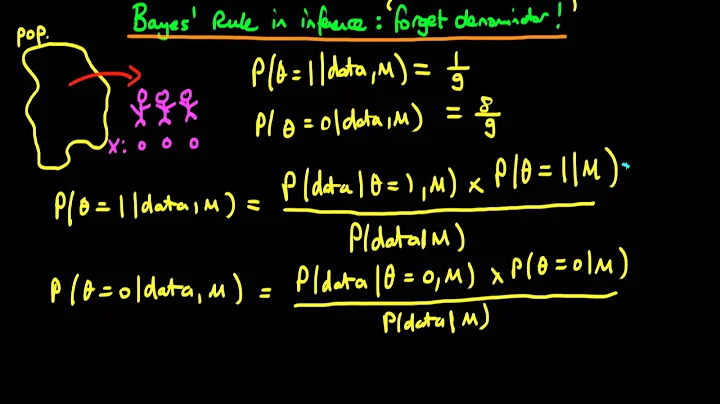 Bayes' Rule in inference: 'forget denominator!'
pop.
P(θ=1|data, M) = 1/9
P(θ=0|data, M) = 8/9
X: 0 0 0
P(θ=1|data, M) = P(data|θ=1, M) × P(θ=1|M)
P(data|M)
P(θ=0|data, M) = P(data|θ=0, M) × P(θ=0|M)
P(data|M)